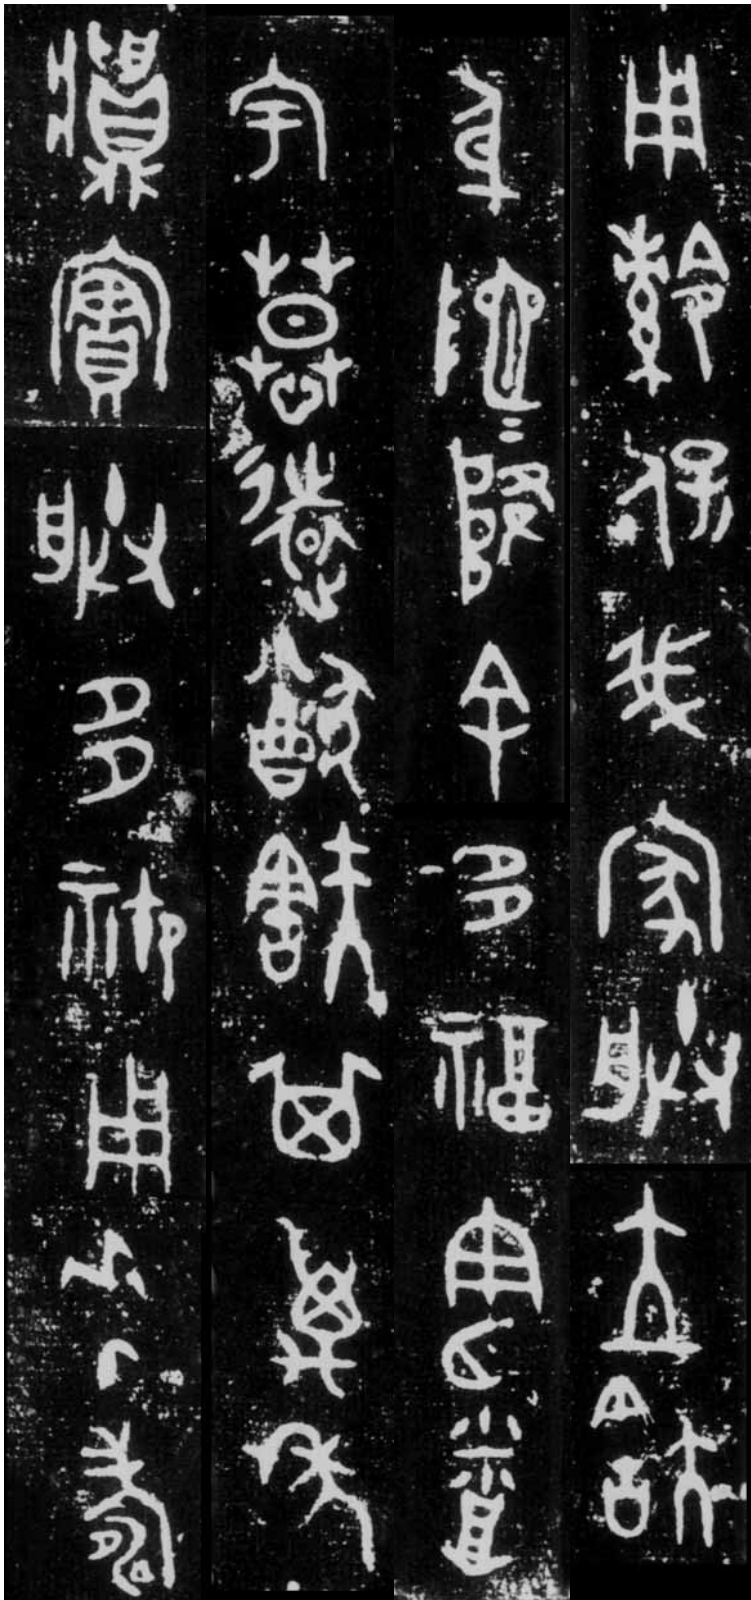 用保我家朕立㝬
身阤=降余多福憲烝
宇慕遠猷㝬其萬年
䵼實朕多禦用𠦪壽